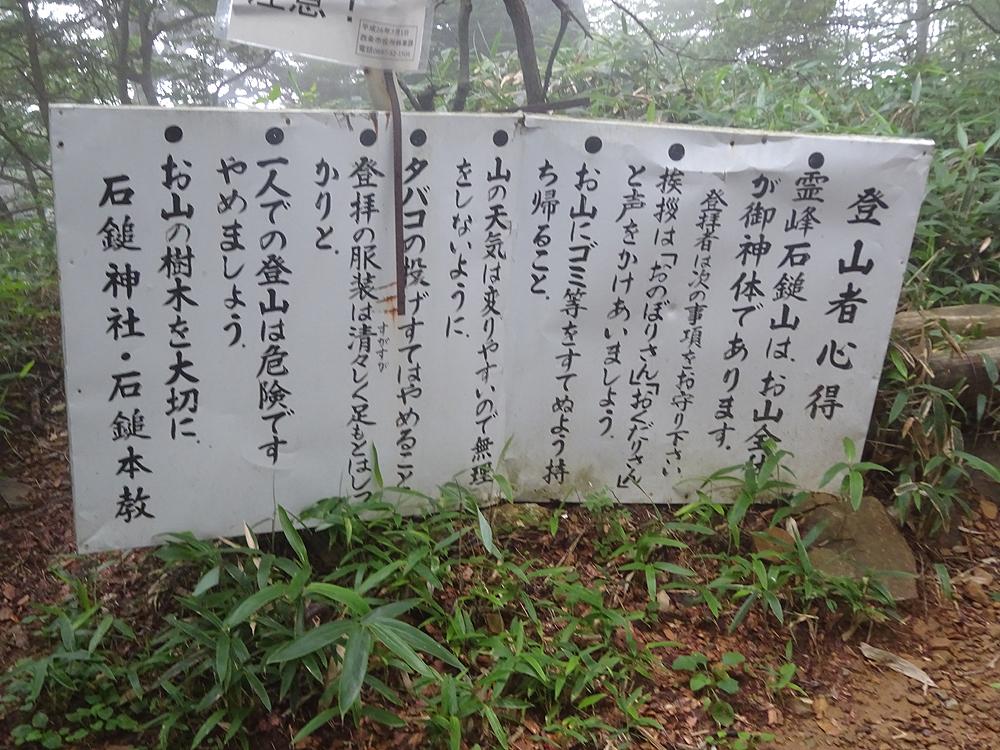 注意！
平成26年7月1日
登山者心得
●霊峰石鎚山は、お山全体
が御神体であります。
登拝者は次の事項をお守り下さい
●挨拶は「おのぼりさん」「おくだりさん」
と声をかけあいましょう。
●お山にゴミ等をすてぬよう持
ち帰ること。
●山の天気は変りやすいので無理
をしないように。
●タバコの投げすてはやめること
●登拝の服装は清々しく足もとはしっ
すがすが
かりと。
●一人での登山は危険です
やめましょう。
●お山の樹木を大切に。
石鎚神社・石鎚本教